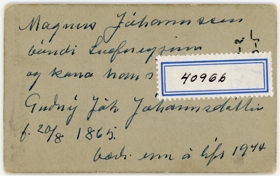 Magnus Jóhannsson
bóndi
og kona hans
40966
Guðný Jóh. Jóhannsdóttir
f. 20/8 1865
bæði enn á lífi 1944